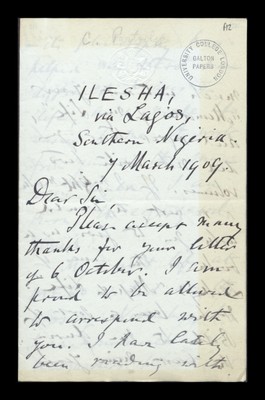 A12
UNIVERSITY COLLEGE LONDON
GALTON
PAPERS
ILESHA,
via Lagos,
Southern Nigeria.
7 March 1909.
Dear Sir,
Please accept many
thanks for your letter
of 6 October. I am
proud to be allowed
to correspond with
you. I have lately
been reading with